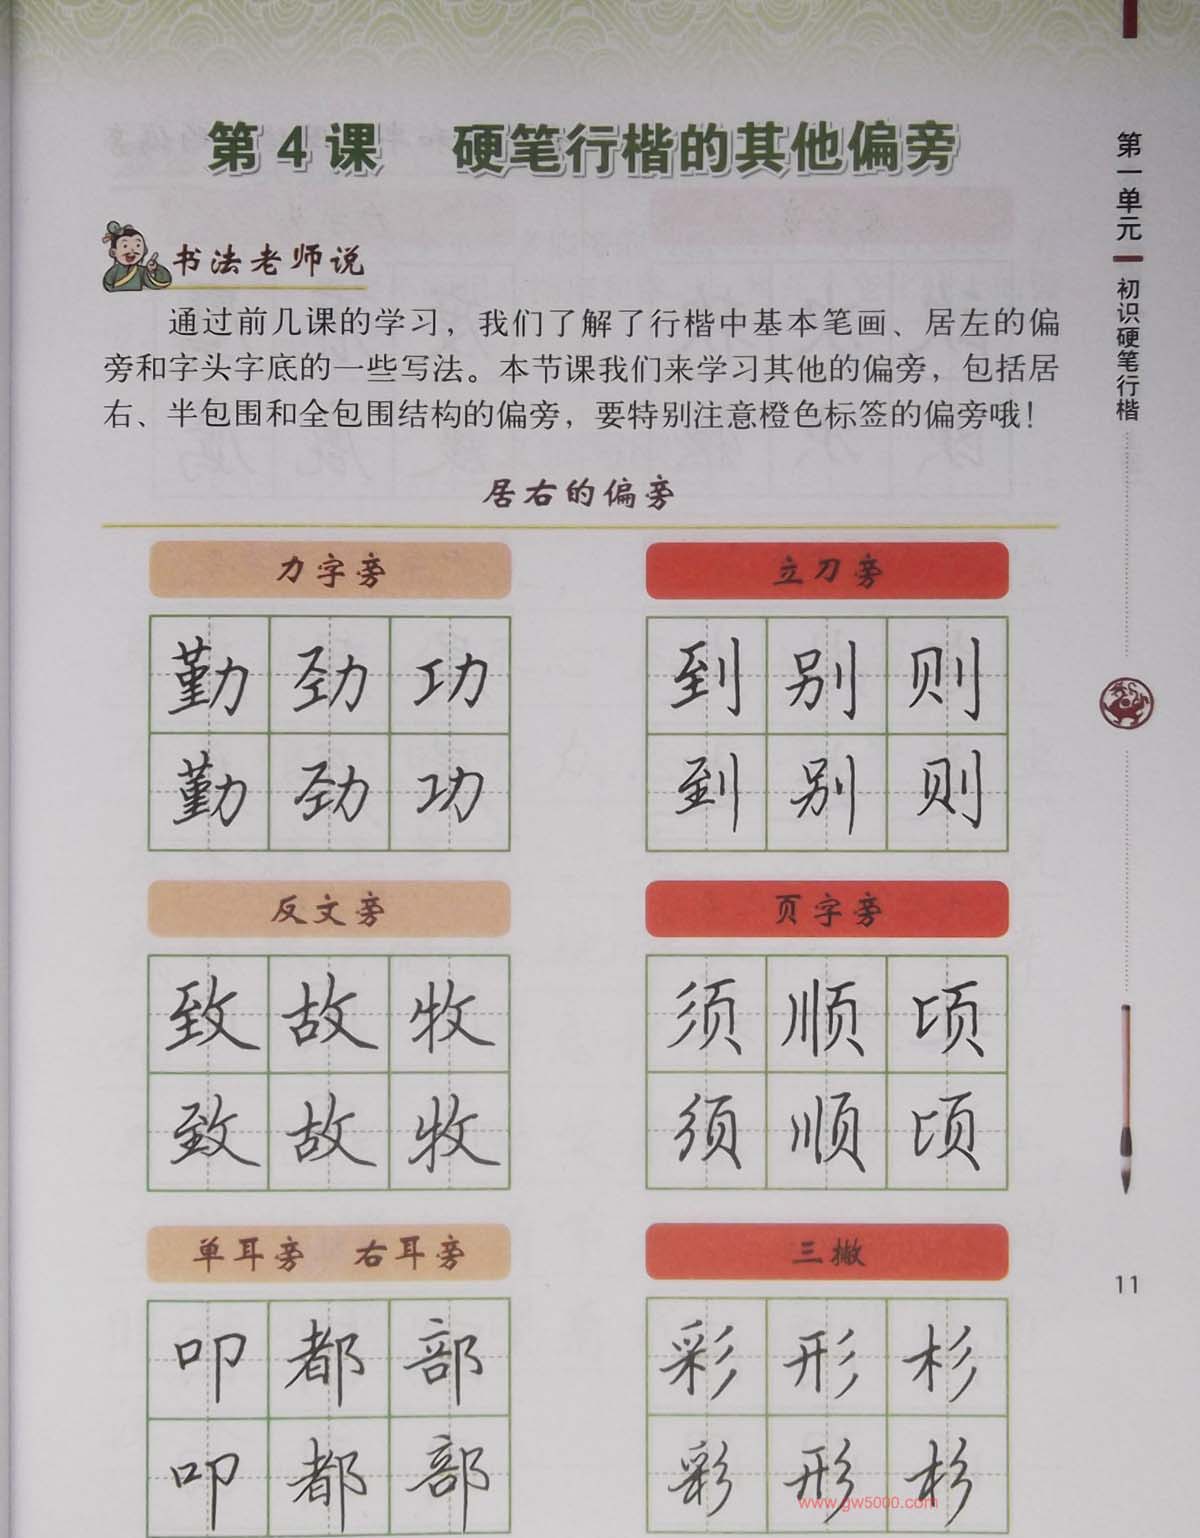 第4课 硬笔行楷的其他偏旁
书法老师说
通过前几课的学习，我们了解了行楷中基本笔画、居左的偏
旁和字头字底的一些写法。本节课我们来学习其他的偏旁，包括居
右、半包围和全包围结构的偏旁，要特别注意橙色标签的偏旁哦！
居右的偏旁
力字旁
勤 劲 功
勤 劲 功
立刀旁
到 别 则
到 别 则
反文旁
致 故 牧
致 故 牧
页字旁
须 顺 顷
须 顺 顷
单耳旁 右耳旁
叩 都 部
叩 都 部
三撇
彩 形 杉
彩 形 杉
www.gw5000.com
第一单元
初识硬笔行楷
11